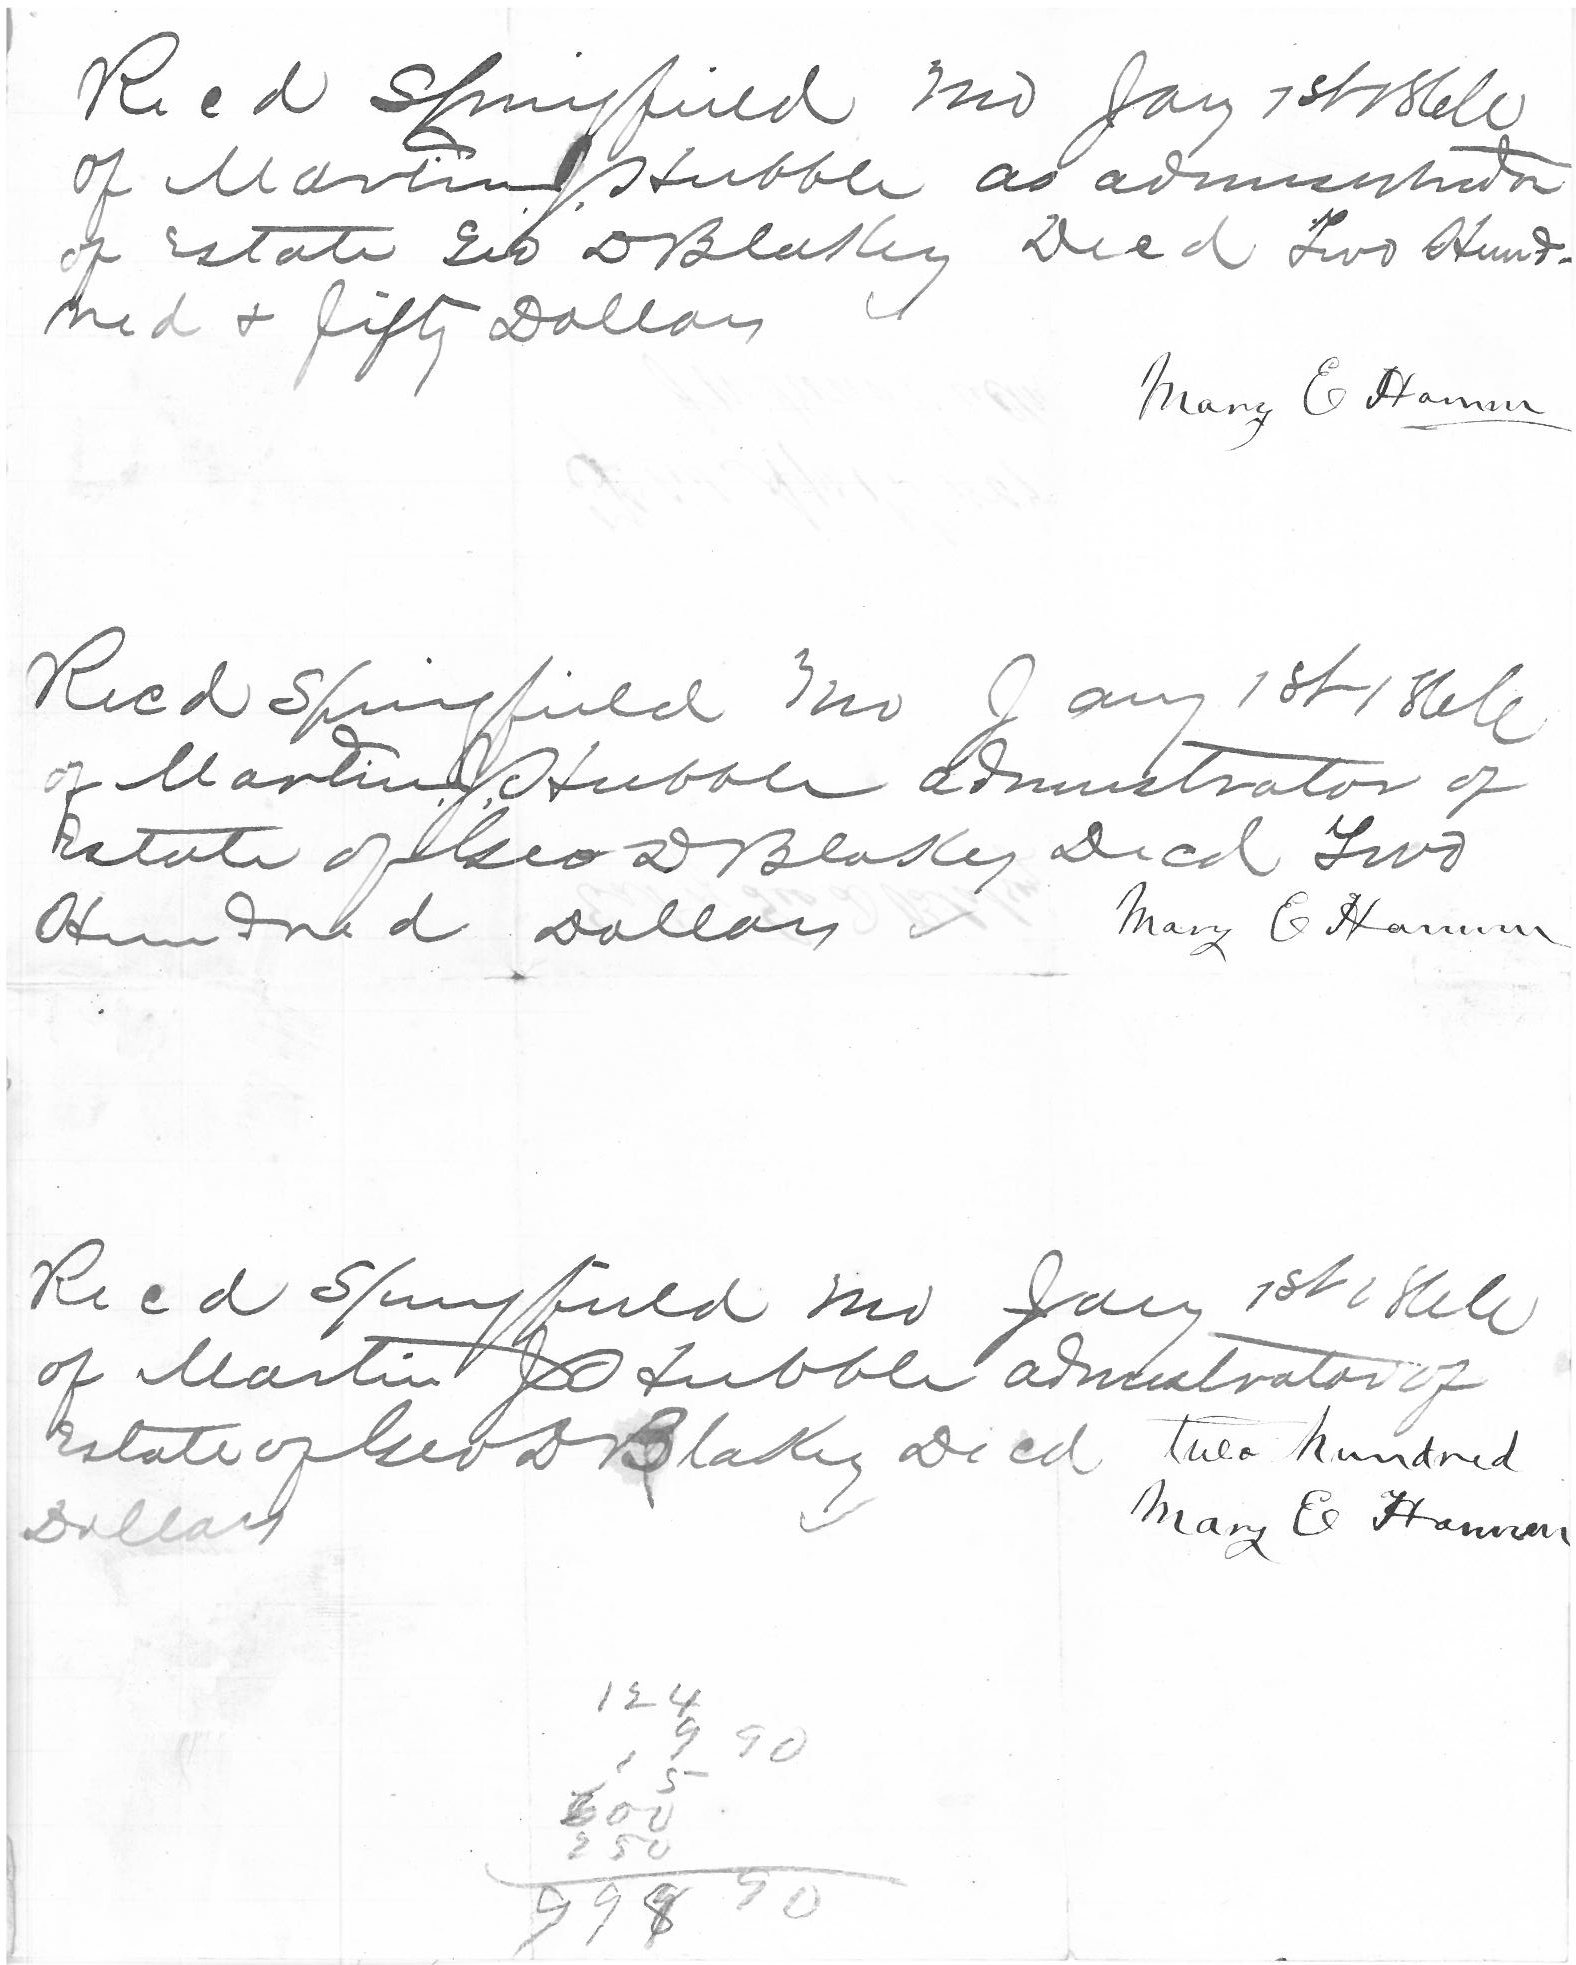 Recd Springfield Mo Jany 1st 1866
of Martin J. Hubble as administrator
of Estate Geo D Blakey Decd Two Hund-
red & fifty Dollars
Mary E Hamm
Recd Springfield Mo Jany 1st 1866
of Martin J. Hubble admnistrator of
Estate of Geo D Blakey Decd Two
Hundred Dollars
Mary E Hamm
Recd Springfield Mo Jany 1st 1866
of Martin J Hubble admnistrator of
Estate of Geo D Blakey Decd two hundred
Dollars
Mary E Hamm
124
9 90
15
600
250
998 90